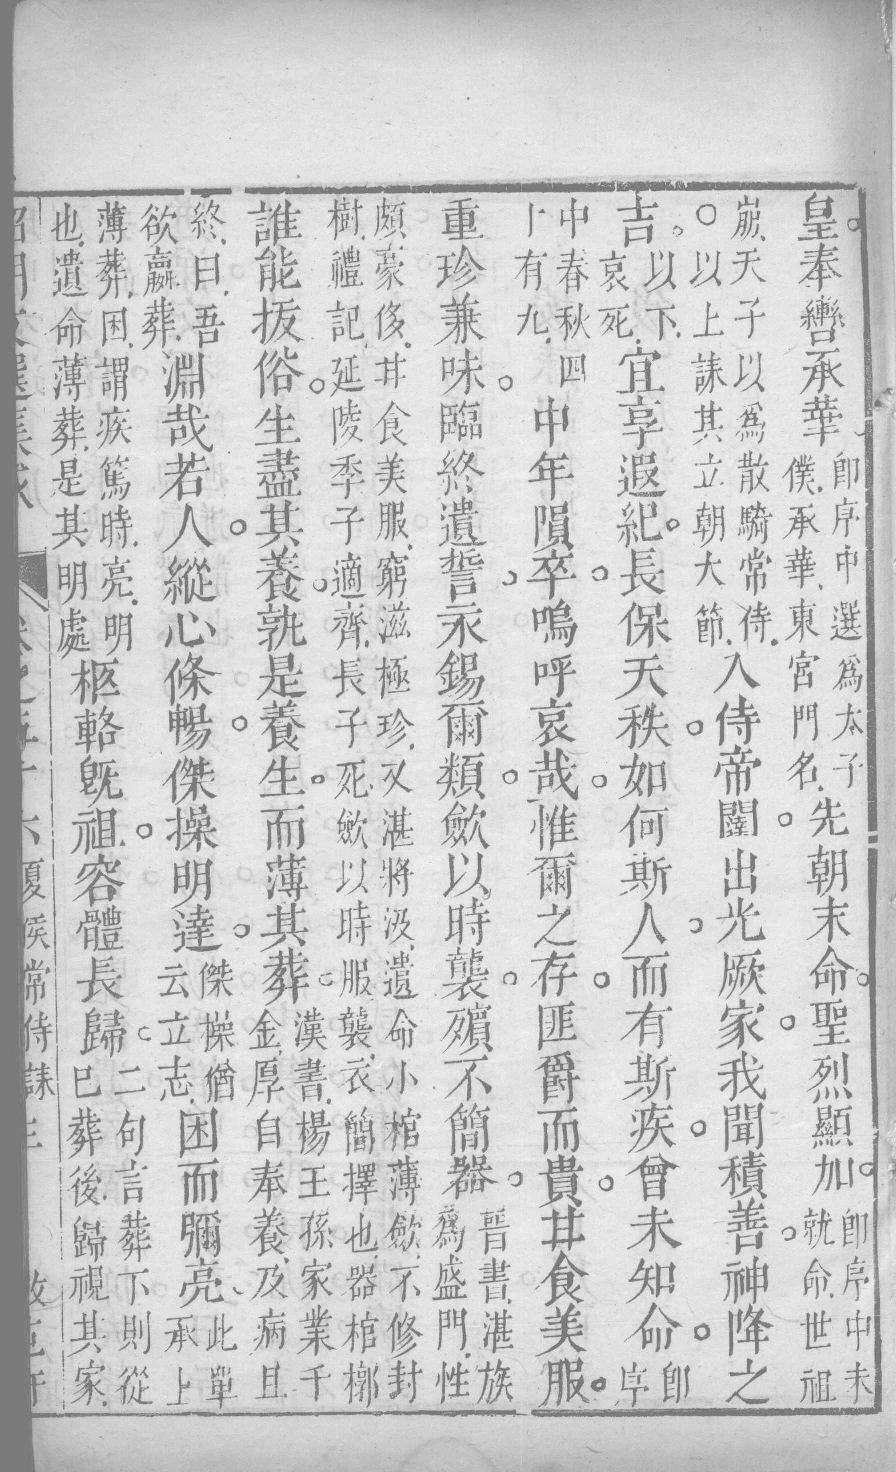 皇奉轡承華
即序中選爲太子
僕承華東宮門名
先朝末命聖烈顯加
即序中未
就命世祖
崩天子以爲散騎常侍
○以上誄其立朝大節
入侍帝闥出光厥家我聞積善神降之
吉
以下
哀死
宜享遐紀長保天秩如何斯人而有斯疾曾未知命
即
序
中春秋四
十有九
中年隕卒嗚呼哀哉惟爾之存匪爵而貴甘食美服
重珍兼味臨終遺誓永錫爾類斂以時襲殯不簡器
晉書湛族
爲盛門性
頗豪侈甘食美服窮滋極珍又湛將沒遺命小棺薄斂不修封
樹禮記延陵季子適齊長子死斂以時服襲衣簡擇也器棺槨
誰能拔俗生盡其養孰是養生而薄其葬
漢書楊王孫家業千
金厚自奉養及病且
終曰吾
欲臝葬
淵哉若人縱心條暢傑操明達
傑操猶
云立志
困而彌亮
此單
承上
薄葬困謂疾篤時亮明
也遺命薄葬是其明處
柩輅旣祖容體長歸
二句言葬下則從
已葬後歸視其家
昭明文選集成 卷之五十六夏侯常侍誄